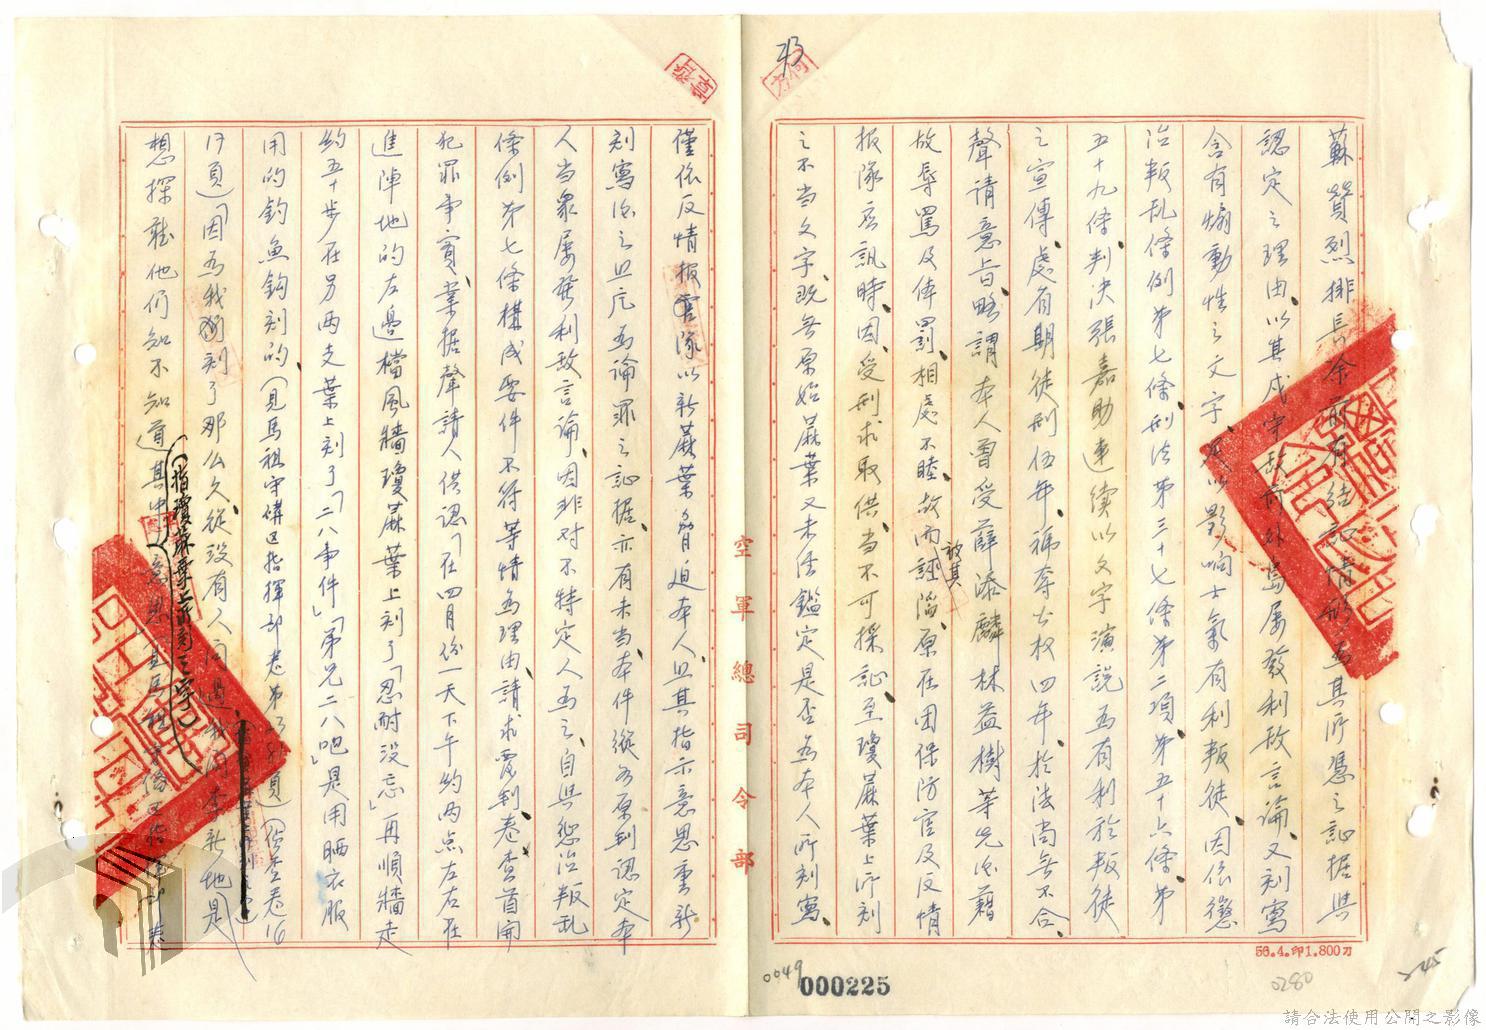 蘇贊烈排長余前有結証情形為其所憑之証据與
認定之理由、以其戍守敵前外島屢發利敵言論、又刻寫
含有煽動性之文字、足以影响士氣有利叛徒、因依懲
治叛乱條例第七條刑法第三十七條第二項、第五十六條、第
五十九條判決張嘉助連續以文字演說為有利於叛徒
之宣傳、處有期徒刑伍年、褫奪公权四年、於法尚無不合
聲請意旨略謂本人曾受薛添麟林益樹等先後藉
故辱罵及俸罰、相處不睦、故而被其誣陷、原在團保防官及反情
报隊應訊時、因受刑求取供、当不可採証、至瓊蔴葉上所刻
之不当文字、既無原始蔴葉又未送鑑定是否為本人所刻寫、
僅依反情报隊以新蔴葉脅迫本人、且其指示意思重新
刻寫後之且庇為論罪之証据、亦有未当、本件縱为原判認定本
人当眾屢發利敵言論、因非对不特定人為之、自與懲治叛乱
條例第七條構成要件不符等情為理由、請求覆判、卷查首開
犯罪事實、業据聲請人供認「在四月份一天下午約两点左右在
進陣地的左邊檔風牆瓊蔴葉上刻了「忍耐没忘」再順牆走
約五十步在另两支葉上刻了「二八事件」「弟兄二八吧」是用晒衣服
用的釣魚鈎刻的、(見馬祖守備区指揮部卷第 頁)(偵查卷16
17頁)「因為我刻了那么久、從没有人问過我问李新地是
想探聽他們知不知道其中(指瓊蔴葉上所刻之字)意思」(見馬祖守備区指揮部卷
空軍總司令部
56.4.印1.800刀
0049
000225
0280
245
請合法使用公開之影像